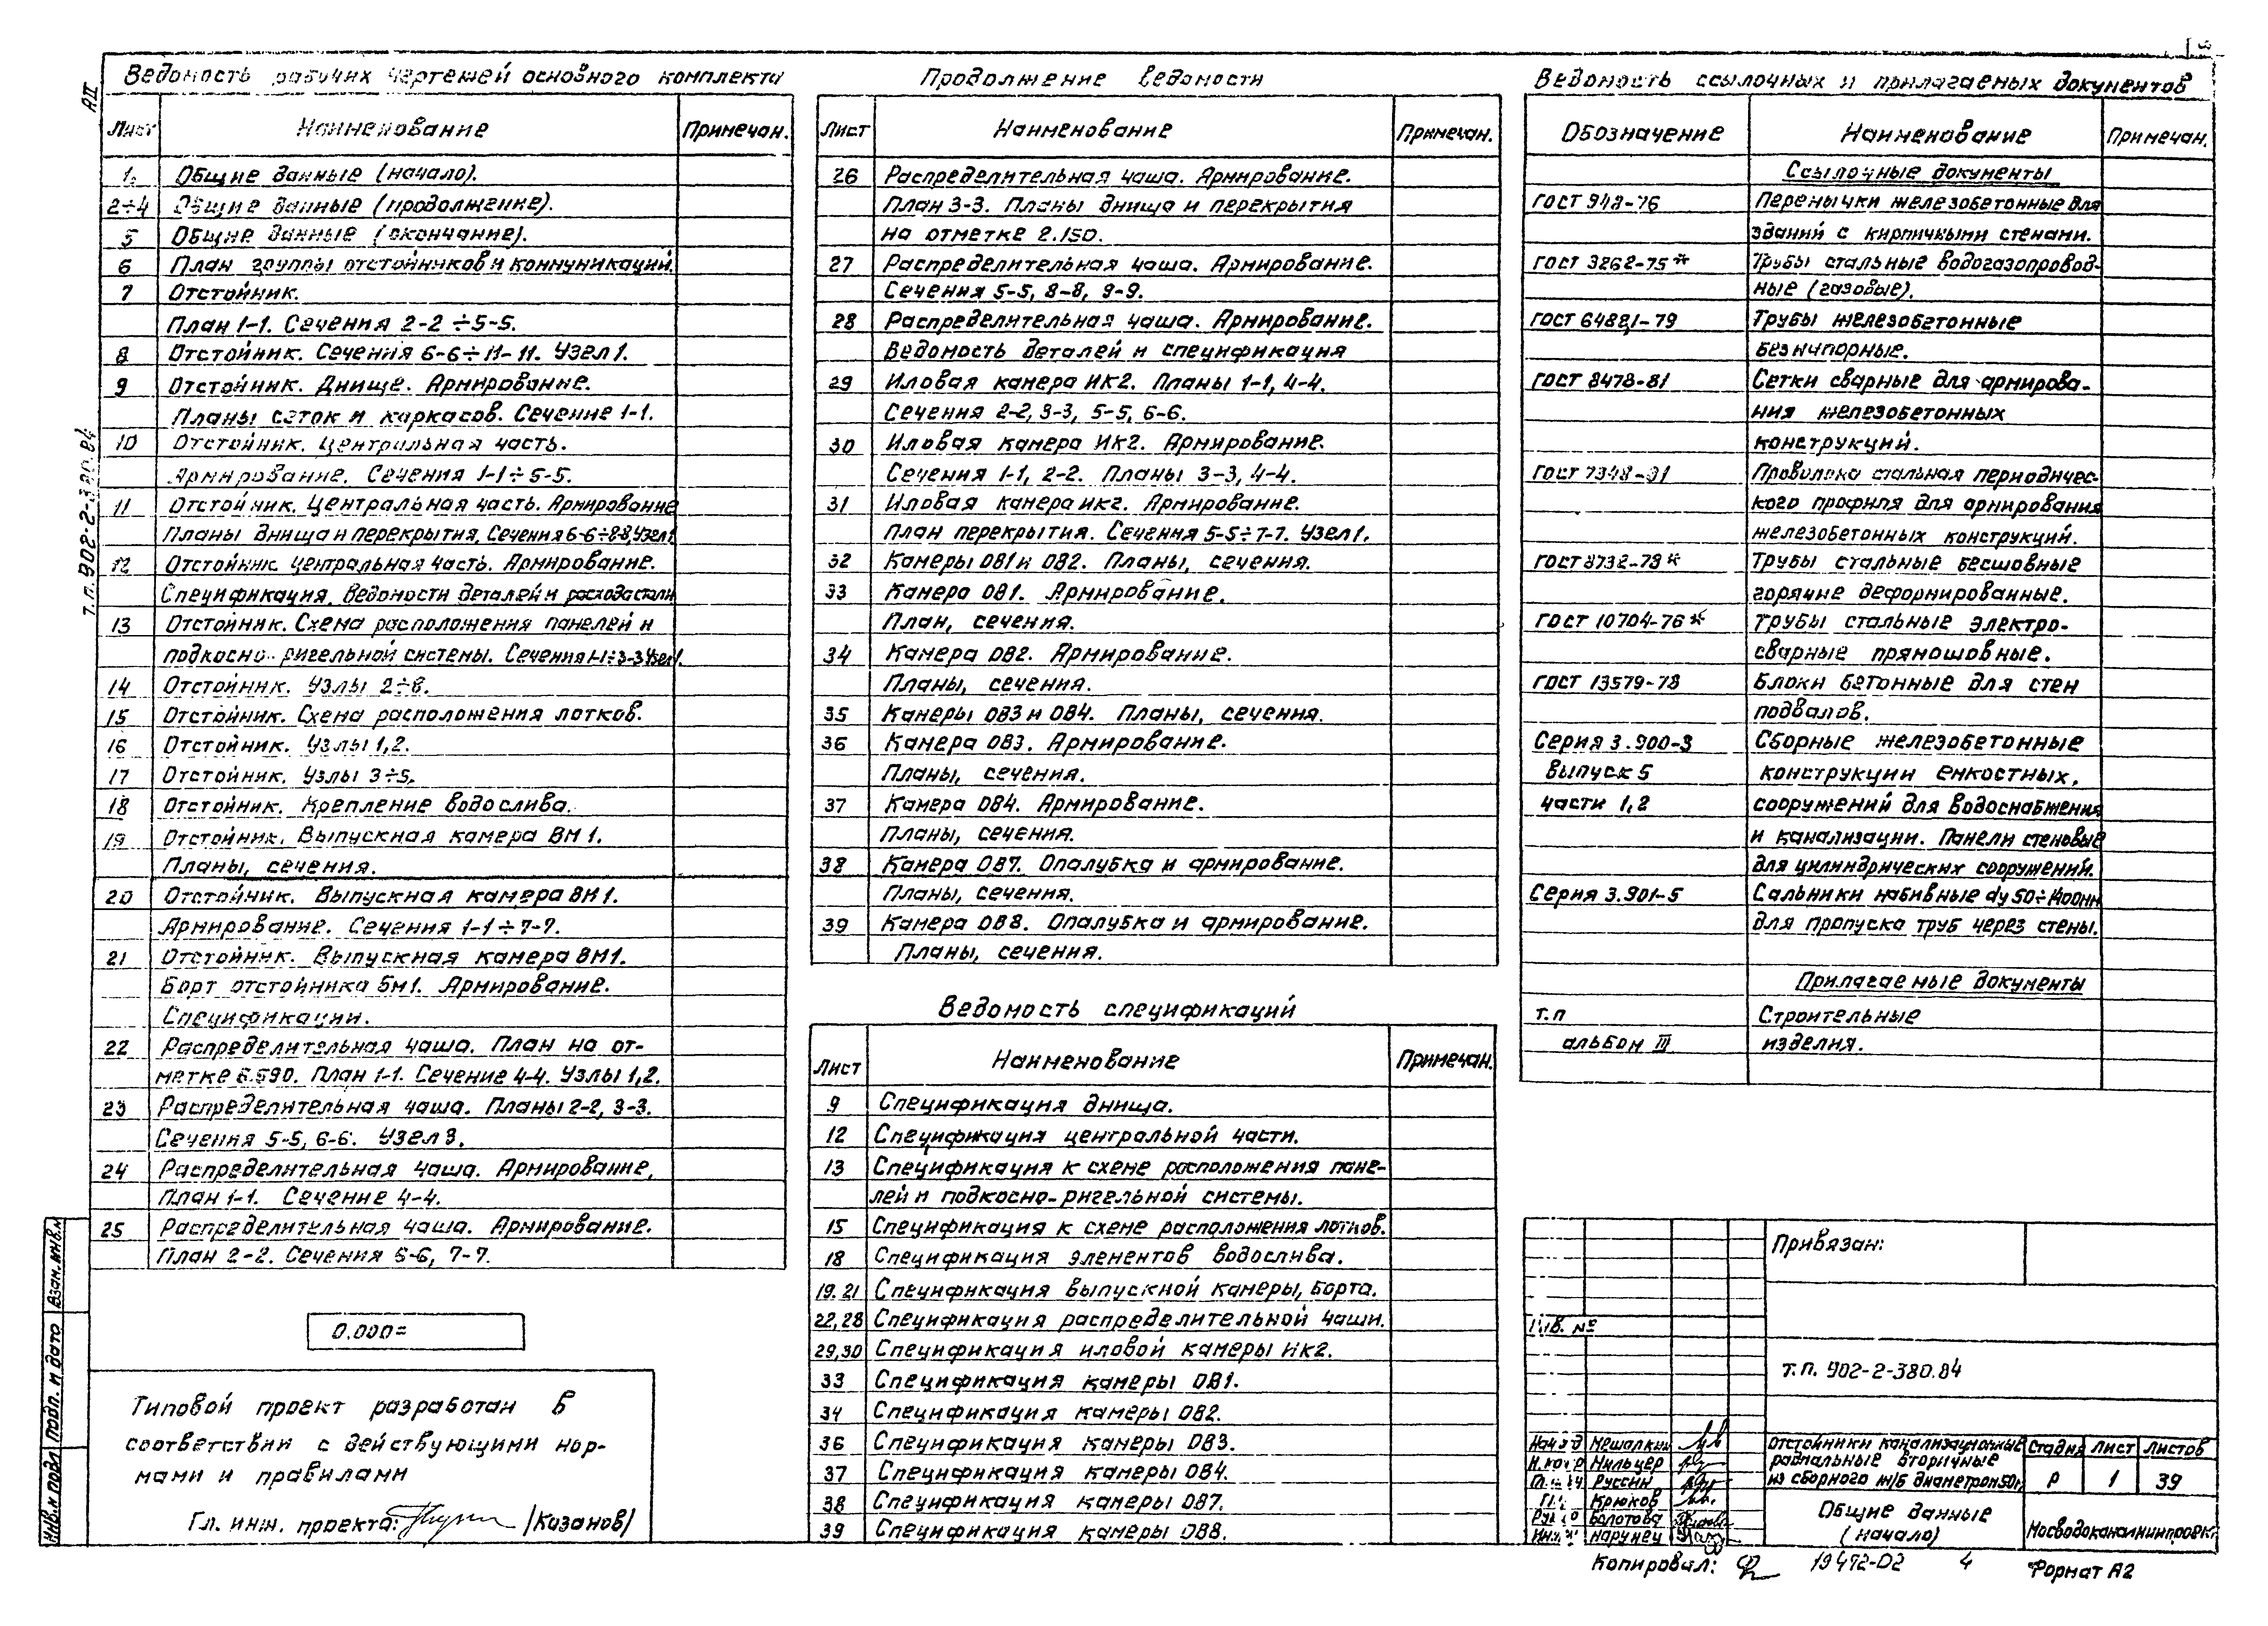 3
АII
т.п. 902-2-380.84
Ведомость рабочих чертежей основного комплекта
Лист Наименование Примечан.
1. Общие данные (начало).
2÷4 Общие данные (продолжение).
5 Общие данные (окончание).
6 План группы отстойников и коммуникаций.
7 Отстойник.
План 1-1. Сечения 2-2÷5-5.
8 Отстойник. Сечения 6-6÷11-11. Узел 1.
9 Отстойник. Днище. Армирование.
Планы сеток и каркасов. Сечение 1-1.
10 Отстойник. Центральная часть.
Армирование. Сечения 1-1÷5-5.
11 Отстойник. Центральная часть. Армирование
Планы днища и перекрытия. Сечения 6-6÷8-8, Узел 1.
12 Отстойник. Центральная часть. Армирование.
Спецификация. Ведомости деталей и расхода стали
13 Отстойник. Схема расположения панелей и
подкосно-ригельной системы. Сечения 1-1÷3-3 Узел 1.
14 Отстойник. Узлы 2÷8.
15 Отстойник. Схема расположения лотков.
16 Отстойник. Узлы 1,2.
17 Отстойник. Узлы 3÷5.
18 Отстойник. Крепление водослива.
19 Отстойник. Выпускная камера ВМ1.
Планы, сечения.
20 Отстойник. Выпускная камера ВМ1.
Армирование. Сечения 1-1÷7-7.
21 Отстойник. Выпускная камера ВМ1.
Борт отстойника Бм1. Армирование.
Спецификации.
22 Распределительная чаша. План на от-
метке 6.590. План 1-1. Сечение 4-4. Узлы 1,2.
23 Распределительная чаша. Планы 2-2, 3-3.
Сечения 5-5, 6-6. Узел 3.
24 Распределительная чаша. Армирование.
План 1-1. Сечение 4-4.
25 Распределительная чаша. Армирование.
План 2-2. Сечения 6-6, 7-7.
0.000=
Типовой проект разработан в
соответствии с действующими нор-
мами и правилами
Гл. инж. проекта: /Казанов/
Взам. инв. н
Подп. и дата
Инв. н подл
Продолжение ведомости
Лист Наименование Примечан.
26 Распределительная чаша. Армирование.
План 3-3. Планы днища и перекрытия
на отметке 2.150.
27 Распределительная чаша. Армирование.
Сечения 5-5, 8-8, 9-9.
28 Распределительная чаша. Армирование.
Ведомость деталей и спецификация
29 Иловая камера ИК2. Планы 1-1, 4-4.
Сечения 2-2, 3-3, 5-5, 6-6.
30 Иловая камера ИК2. Армирование.
Сечения 1-1, 2-2. Планы 3-3, 4-4.
31 Иловая камера ИК2. Армирование.
План перекрытия. Сечения 5-5÷7-7. Узел 1.
32 Камеры ОВ1 и ОВ2. Планы, сечения.
33 Камера ОВ1. Армирование.
План, сечения.
34 Камера ОВ2. Армирование.
Планы, сечения.
35 Камеры ОВ3 и ОВ4. Планы, сечения.
36 Камера ОВ3. Армирование.
Планы, сечения.
37 Камера ОВ4. Армирование.
Планы, сечения.
38 Камера ОВ7. Опалубка и армирование.
Планы, сечения.
39 Камера ОВ8. Опалубка и армирование.
Планы, сечения.
Ведомость спецификаций
Лист Наименование Примечан.
9 Спецификация днища.
12 Спецификация центральной части.
13 Спецификация к схеме расположения пане-
лей и подкосно-ригельной системы.
15 Спецификация к схеме расположения лотков.
18 Спецификация элементов водослива.
19.21 Спецификация выпускной камеры, борта.
22,28 Спецификация распределительной чаши.
29,30 Спецификация иловой камеры ИК2.
33 Спецификация камеры ОВ1.
34 Спецификация камеры ОВ2.
36 Спецификация камеры ОВ3.
37 Спецификация камеры ОВ4.
38 Спецификация камеры ОВ7.
39 Спецификация камеры ОВ8.
Ведомость ссылочных и прилагаемых документов
Обозначение Наименование Примечан.
Ссылочные документы
ГОСТ 948-76 Перемычки железобетонные для
зданий с кирпичными стенами.
ГОСТ 3262-75* Трубы стальные водогазопровод-
ные (газовые).
ГОСТ 6482.1-79 Трубы железобетонные
безнапорные.
ГОСТ 8478-81 Сетки сварные для армирова-
ния железобетонных
конструкций.
ГОСТ 7348-81 Проволока стальная периодичес-
кого профиля для армирования
железобетонных конструкций.
ГОСТ 8732-78* Трубы стальные бесшовные
горяче деформированные.
ГОСТ 10704-76* Трубы стальные электро-
сварные прямошовные.
ГОСТ 13579-78 Блоки бетонные для стен
подвалов.
Серия 3.900-3 Сборные железобетонные
выпуск 5 конструкции емкостных,
части 1,2 сооружений для водоснабжения
и канализации. Панели стеновые
для цилиндрических сооружений.
Серия 3.901-5 Сальники набивные dу50÷1400мм
для пропуска труб через стены.
Прилагаемые документы
т.п Строительные
альбом III изделия.
Привязан:
Инв. №
т.п. 902-2-380.84
Нач.отд Мешалкин
Н.контр Мильцер
Руссин
Крюков
Болотова
Марунец
Отстойники канализационные
радиальные вторичные
из сборного ж/б диаметром 50м.
Стадия Лист Листов
Р 1 39
Общие данные
(начало)
Мосводоканалниипроект
Копировал: 19472-02 4 Формат А2